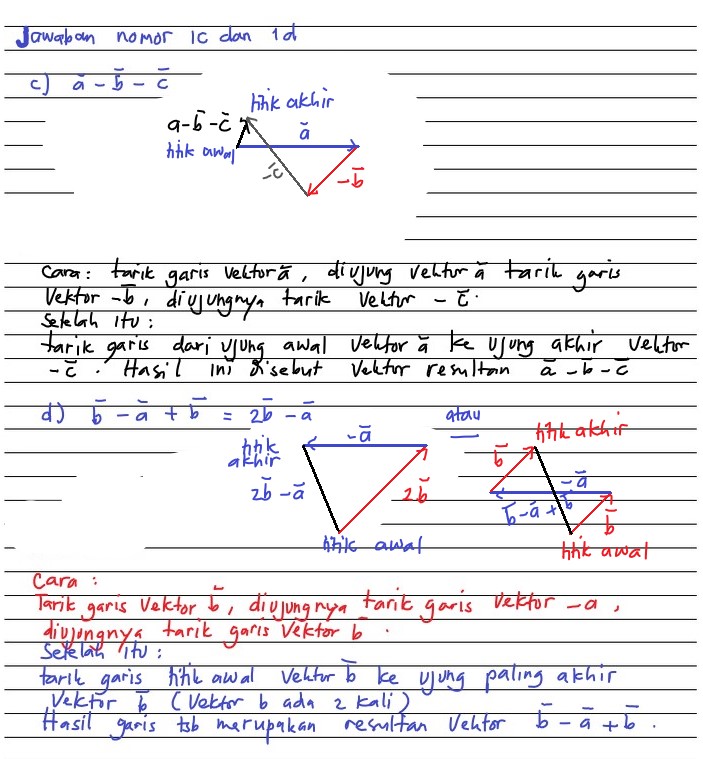 Jawaban nomor 1c dan 1d
c) ā - b̄ - c̄
titik akhir
a-b̄-c̄
ā
titik awal
-c̄
-b̄
Cara: tarik garis vektor ā, diujung vektor ā tarik garis
Vektor -b̄, diujungnya tarik Vektor - c̄.
Setelah itu:
tarik garis dari ujung awal Vektor ā ke ujung akhir Vektor
-c̄. Hasil ini disebut Vektor resultan ā - b̄ - c̄
d) b̄ - ā + b̄ = 2b̄ - ā
atau
titik akhir
-ā
2b̄ - ā
2b̄
titik awal
titik akhir
b̄
-ā
b̄ - ā + b̄
b̄
titik awal
Cara:
Tarik garis Vektor b̄, diujungnya tarik garis Vektor -a,
diujungnya tarik garis Vektor b̄.
Setelah itu:
tarik garis titik awal Vektor b̄ ke ujung paling akhir
Vektor b̄ (Vektor b ada 2 kali)
Hasil garis tsb merupakan resultan Vektor b̄ - ā + b̄.